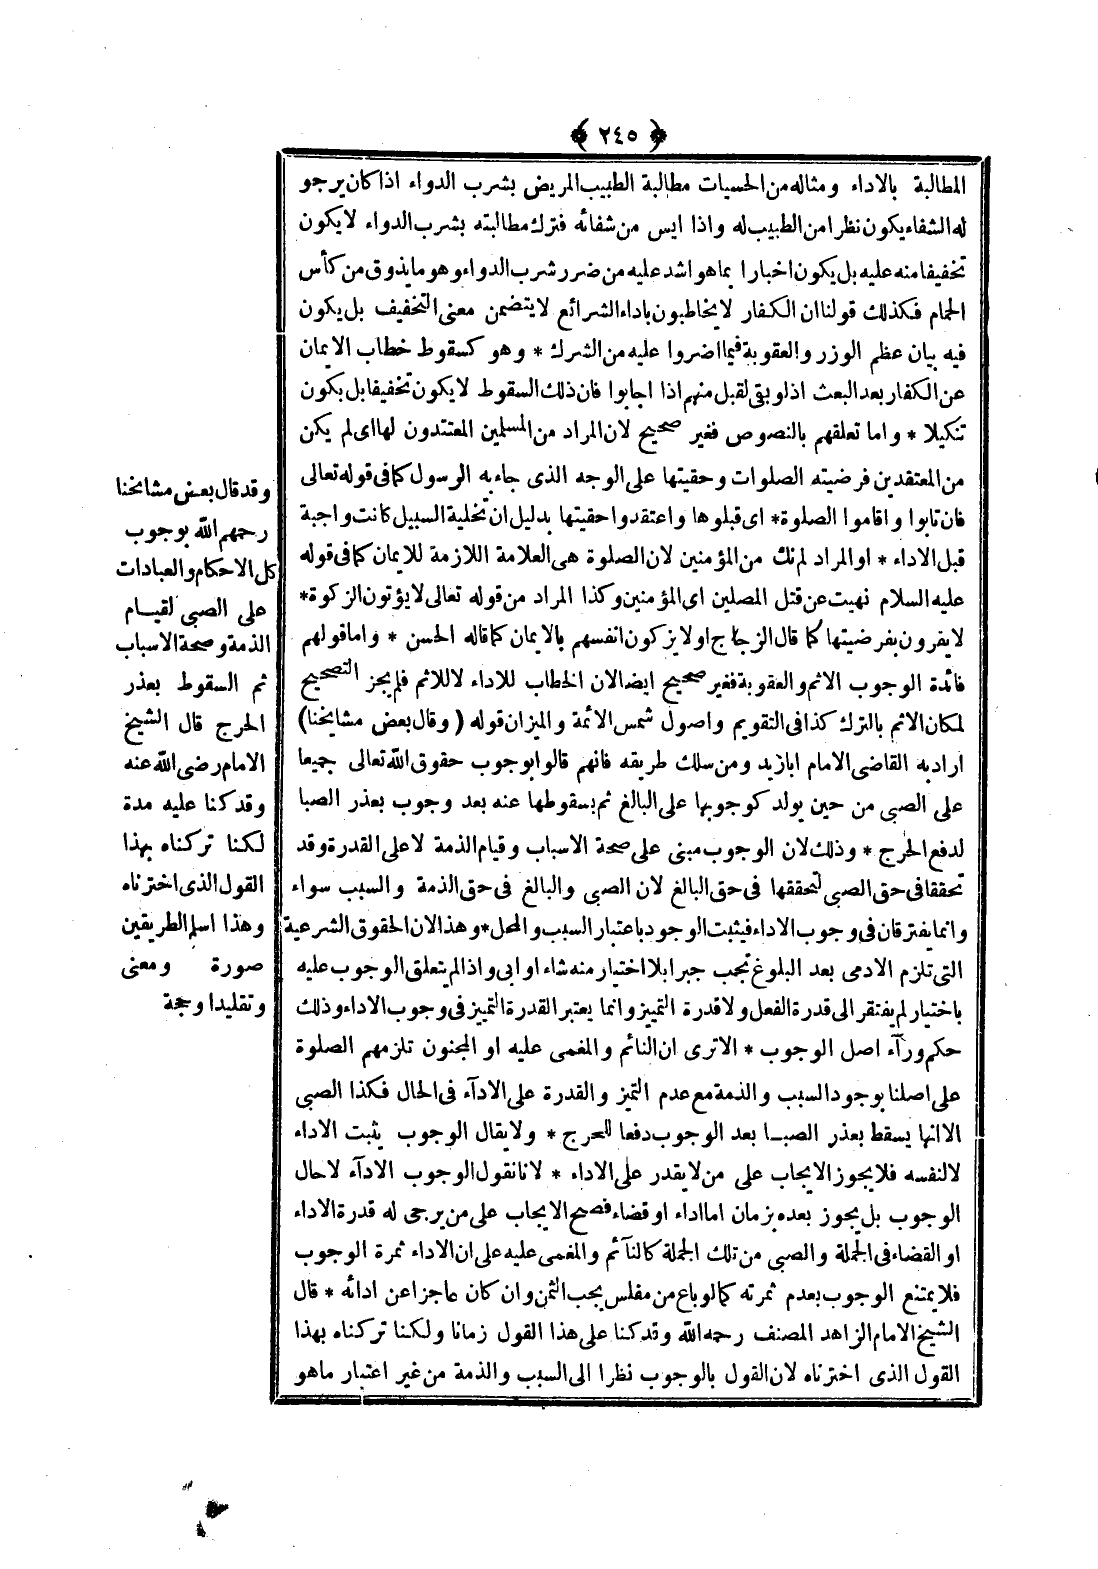 ﴿ ٢٤٥ ﴾
المطالبة بالاداء ومثاله من الحسيات مطالبة الطبيب المريض بشرب الدواء اذا كان يرجو
له الشفاء يكون نظرا من الطبيب له واذا ايس من شفائه فترك مطالبته بشرب الدواء لا يكون
تخفيفا منه عليه بل يكون اخبارا بما هو اشد عليه من ضرر شرب الدواء وهو ما يذوق من كأس
الحمام فكذلك قولنا ان الكفار لا يخاطبون باداء الشرائع لا يتضمن معنى التخفيف بل يكون
فيه بيان عظم الوزر والعقوبة فيما اضروا عليه من الشرك * وهو كسقوط خطاب الايمان
عن الكفار بعد البعث اذ لو بقى لقبل منهم اذا اجابوا فان ذلك السقوط لا يكون تخفيفا بل يكون
تنكيلا * واما تعلقهم بالنصوص فغير صحيح لان المراد من المسلمين المعتقدون لها اى لم يكن
من المعتقدين فرضيته الصلوات وحقيتها على الوجه الذى جاء به الرسول كما فى قوله تعالى
فان تابوا واقاموا الصلوة * اى قبلوها واعتقدوا حقيتها بدليل ان تخلية السبيل كانت واجبة
قبل الاداء * او المراد لم نك من المؤمنين لان الصلوة هى العلامة اللازمة للايمان كما فى قوله
عليه السلام نهيت عن قتل المصلين اى المؤمنين وكذا المراد من قوله تعالى لا يؤتون الزكوة *
لا يقرون بفرضيتها كما قال الزجاج او لا يزكون انفسهم بالايمان كما قاله الحسن * واما قولهم
فائدة الوجوب الاثم والعقوبة فغير صحيح ايضا لان الخطاب للاداء لا للاثم فلم يجز التصحيح
لمكان الاثم بالترك كذا فى التقويم واصول شمس الأئمة والميزان قوله ( وقال بعض مشايخنا )
اراد به القاضى الامام ابا زيد ومن سلك طريقه فانهم قالوا بوجوب حقوق الله تعالى جميعا
على الصبى من حين يولد كوجوبها على البالغ ثم بسقوطها عنه بعد وجوب بعذر الصبا
لدفع الحرج * وذلك لان الوجوب مبنى على صحة الاسباب وقيام الذمة لا على القدرة وقد
تحققا فى حق الصبى لتحققها فى حق البالغ لان الصبى والبالغ فى حق الذمة والسبب سواء
وانما يفترقان فى وجوب الاداء فيثبت الوجود باعتبار السبب والمحل * وهذا لان الحقوق الشرعية
التى تلزم الادمى بعد البلوغ تجب جبرا بلا اختيار منه شاء او ابى واذا لم يتعلق الوجوب عليه
باختيار لم يفتقر الى قدرة الفعل ولا قدرة التمييز وانما يعتبر القدرة التمييز فى وجوب الاداء وذلك
حكم ورآء اصل الوجوب * الا ترى ان النائم والمغمى عليه او المجنون تلزمهم الصلوة
على اصلنا بوجود السبب والذمة مع عدم التميز والقدرة على الادآء فى الحال فكذا الصبى
الا انها يسقط بعذر الصبا بعد الوجوب دفعا للحرج * ولا يقال الوجوب يثبت الاداء
لا لنفسه فلا يجوز الايجاب على من لا يقدر على الاداء * لانا نقول الوجوب الادآء لا حال
الوجوب بل يجوز بعده بزمان اما اداء او قضاء فصح الايجاب على من يرجى له قدرة الاداء
او القضاء فى الجملة والصبى من تلك الجملة كالنآئم والمغمى عليه على ان الاداء ثمرة الوجوب
فلا يمتنع الوجوب بعدم ثمرته كما لو باع من مفلس يجب الثمن وان كان عاجزا عن ادائه * قال
الشيخ الامام الزاهد المصنف رحمه الله وقد كنا على هذا القول زمانا ولكنا تركناه بهذا
القول الذى اخترناه لان القول بالوجوب نظرا الى السبب والذمة من غير اعتبار ما هو
وقد قال بعض مشايخنا
رحمهم الله بوجوب
كل الاحكام والعبادات
على الصبى لقيام
الذمة وصحة الاسباب
ثم السقوط بعذر
الحرج قال الشيخ
الامام رضى الله عنه
وقد كنا عليه مدة
لكنا تركناه بهذا
القول الذى اخترناه
وهذا اسلم الطريقين
صورة ومعنى
وتقليدا وحجة